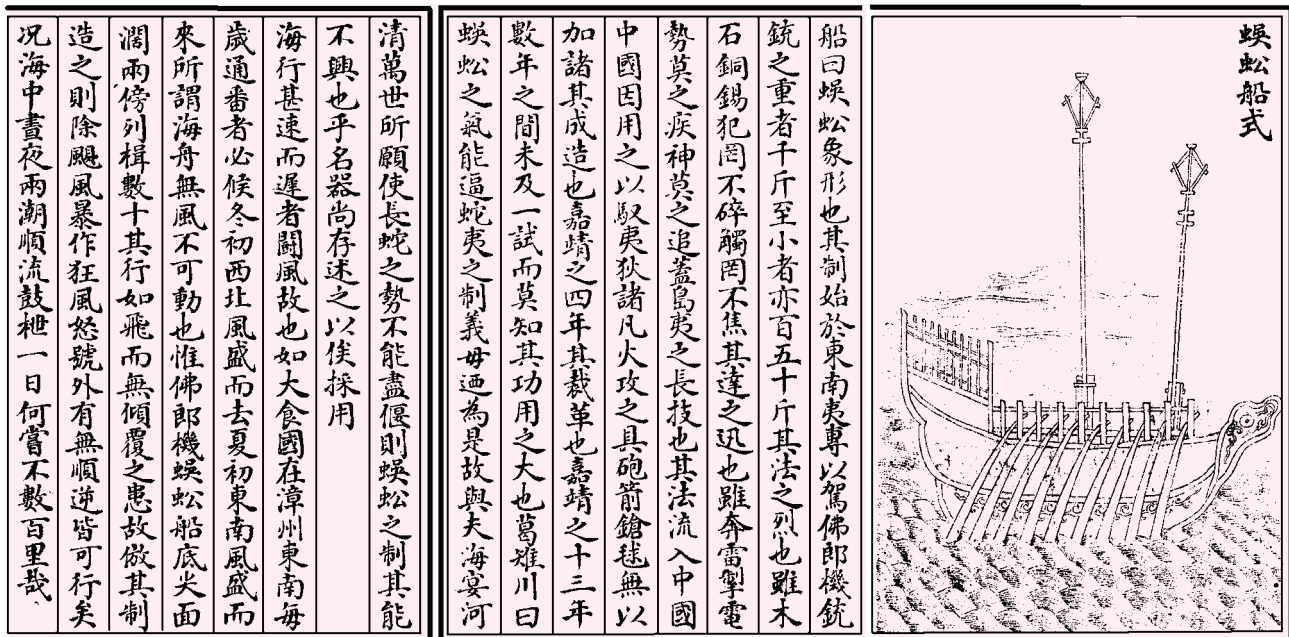 蜈蚣船式
船曰蜈蚣象形也其制始於東南夷專以駕佛郎機銃
銃之重者千斤至小者亦百五十斤其法之烈也雖木
石銅錫犯罔不碎觸罔不焦其達之迅也雖奔雷掣電
勢莫之疾神莫之追蓋島夷之長技也其法流入中國
中國因用之以馭夷狄諸凡火攻之具砲箭鎗毬無以
加諸其成造也嘉靖之四年其裁革也嘉靖之十三年
數年之間未及一試而莫知其功用之大也葛雉川曰
蜈蚣之氣能逼蛇夷之制義毋迺為是故與夫海宴河
清萬世所願使長蛇之勢不能盡偃則蜈蚣之制其能
不興也乎名器尚存述之以俟採用
海行甚速而遲者鬭風故也如大食國在漳州東南每
歲通番者必候冬初西北風盛而去夏初東南風盛而
來所謂海舟無風不可動也惟佛郎機蜈蚣船底尖面
濶兩傍列楫數十其行如飛而無傾覆之患故倣其制
造之則除颶風暴作狂風怒號外有無順逆皆可行矣
况海中晝夜兩潮順流鼓枻一日何嘗不數百里哉